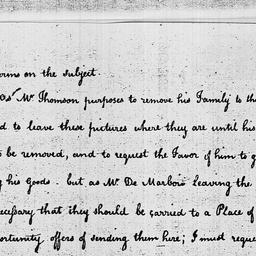 orms on the subject.
As Mr Thomson purposes to remove his Family to th
d to leave these pictures where they are until his
o be removed, and to request the Favor of him to g
g his Goods. but as Mr De Marbois Leaving the
ecessary that they should be carried to a Place of
ortunity offers of sending them here; I must reque